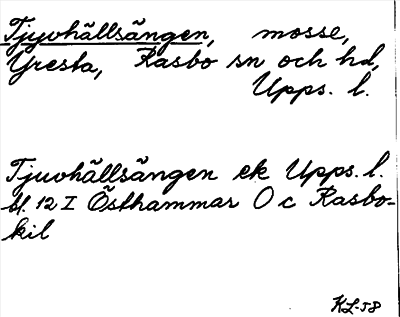 Tjyvhällsängen, mosse,
Yresta, Rasbo sn och hd,
Upps. l.
Tjuvhällsängen ek Upps. l.
bl. 12 I Östhammar O c Rasbo-
kil
KL-58